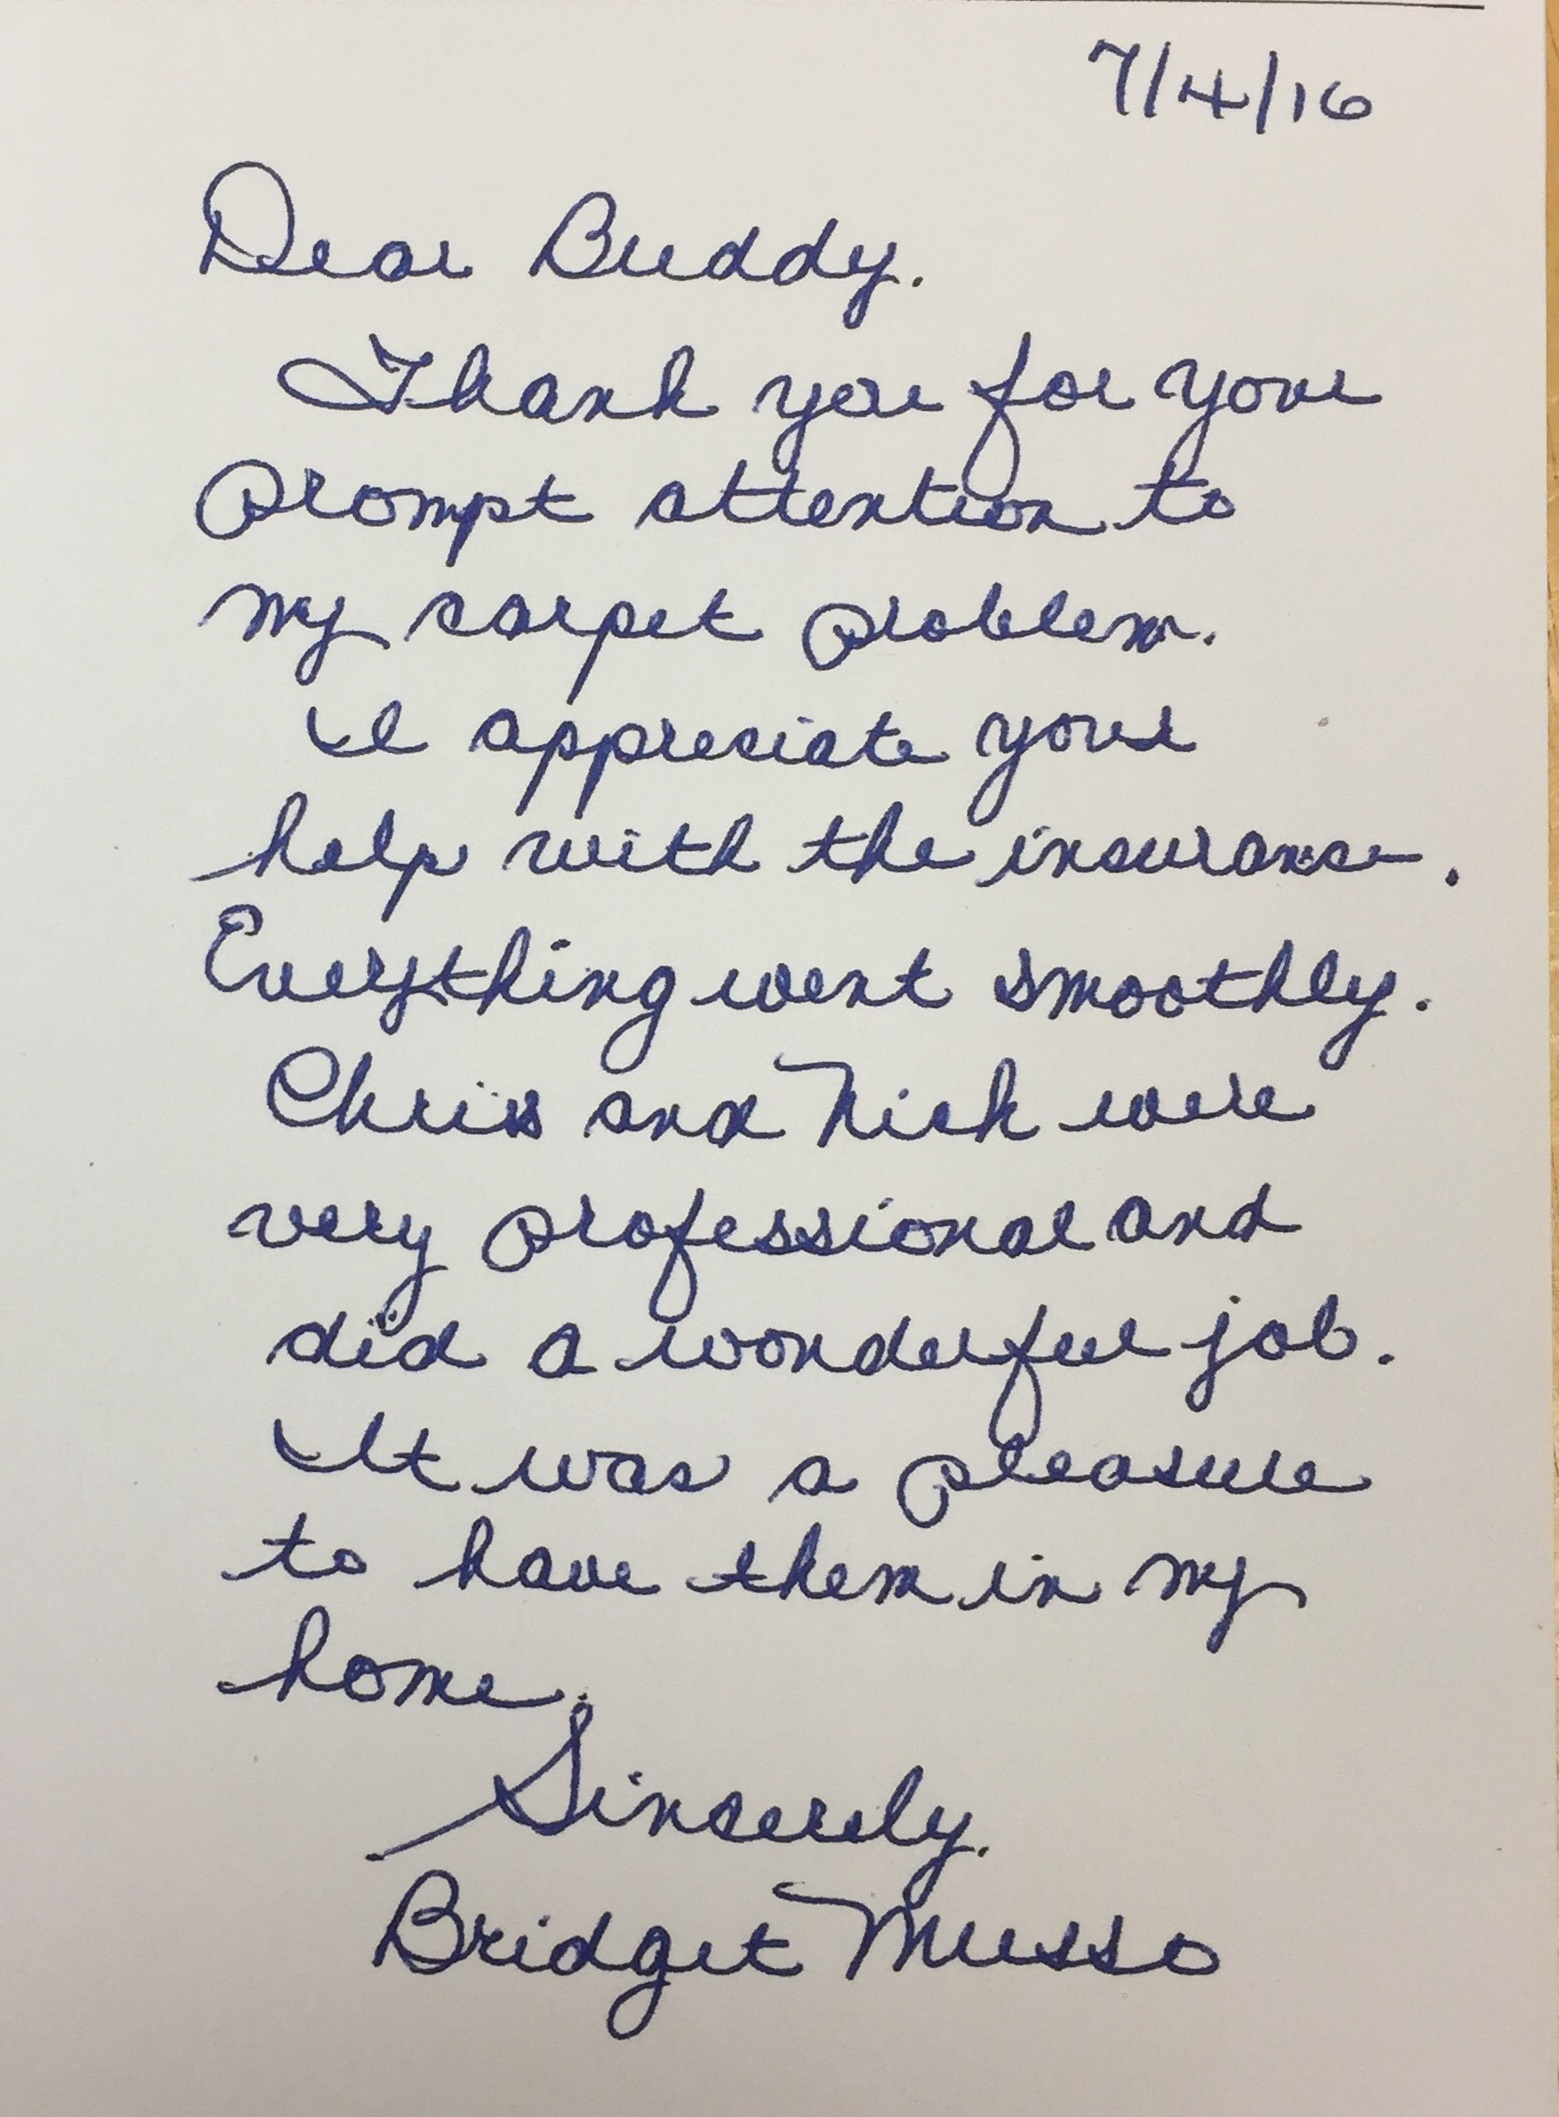 7/4/16
Dear Buddy.
Thank you for your
prompt attention to
my carpet problem.
I appreciate your
help with the insurance.
Everything went smoothly.
Chris and Nick were
very professional and
did a wonderful job.
It was a pleasure
to have them in my
home.
Sincerely.
Bridget Musso